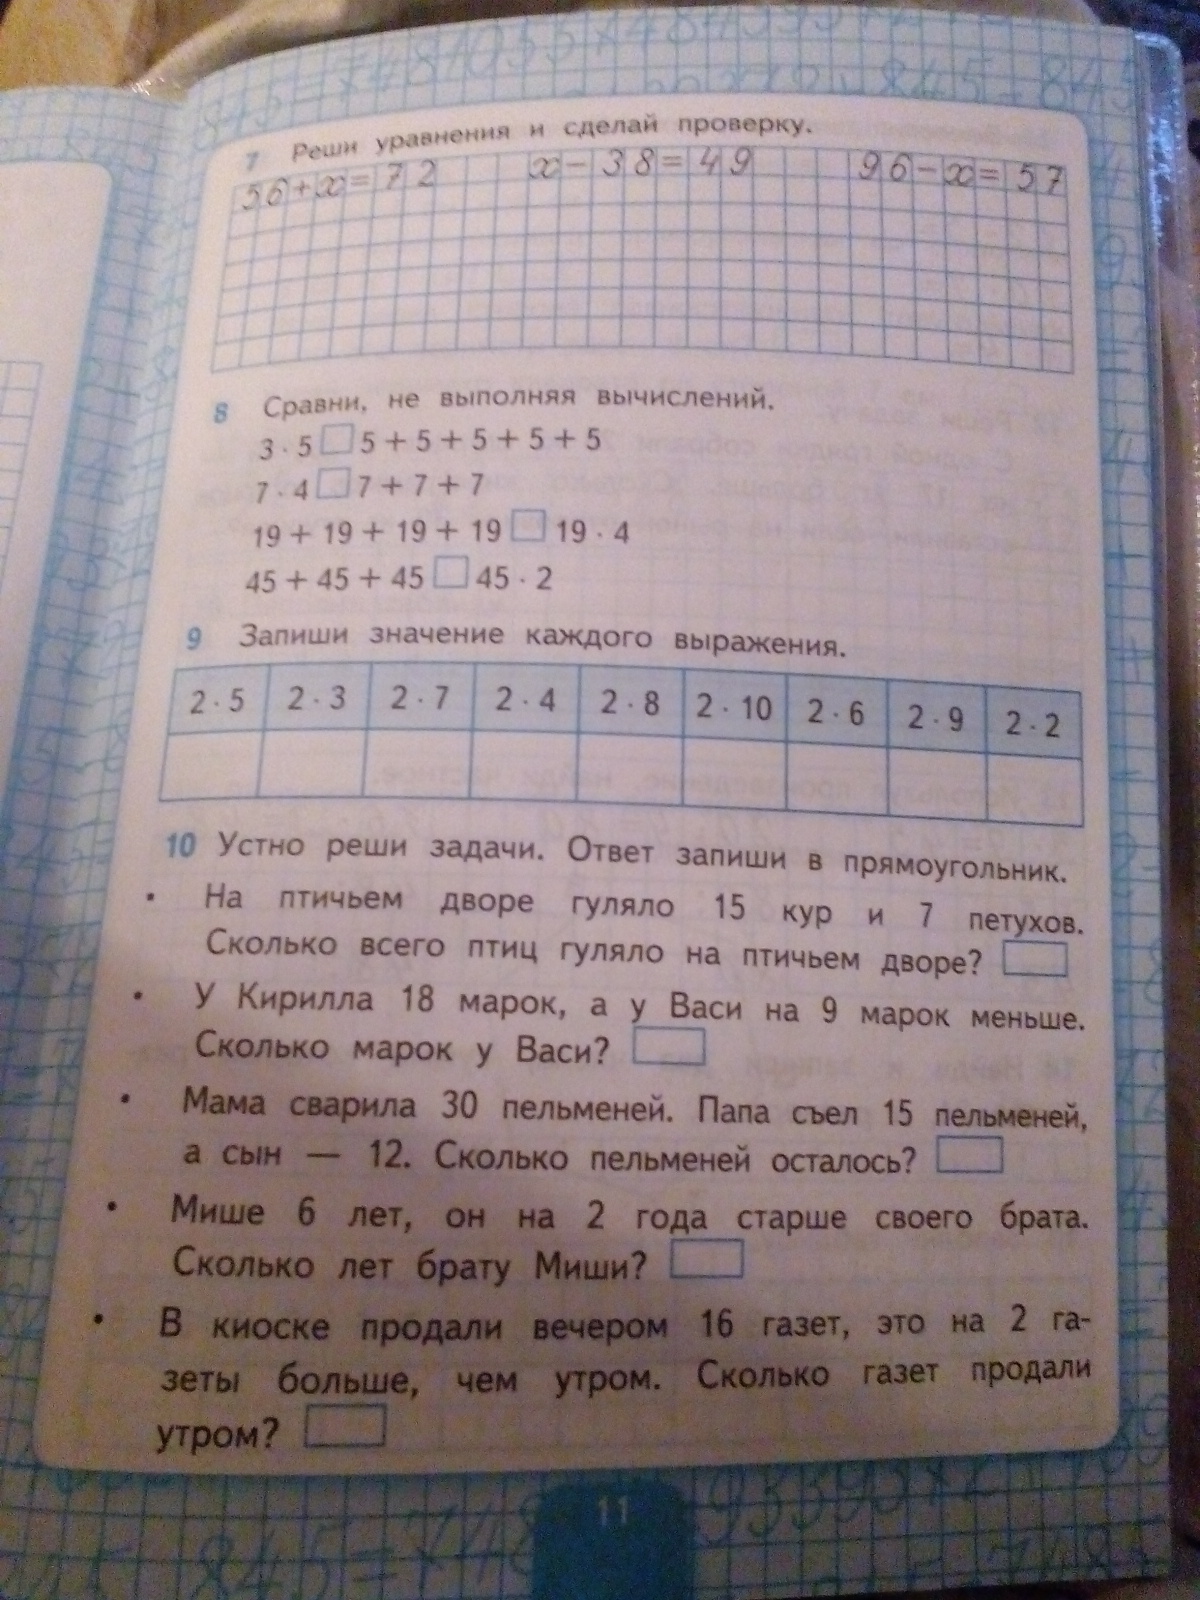 7 Реши уравнения и сделай проверку.
56+x=72 x-38=49 96-x=57
8 Сравни, не выполняя вычислений.
3 · 5 □ 5 + 5 + 5 + 5 + 5
7 · 4 □ 7 + 7 + 7
19 + 19 + 19 + 19 □ 19 · 4
45 + 45 + 45 □ 45 · 2
9 Запиши значение каждого выражения.
2 · 5 2 · 3 2 · 7 2 · 4 2 · 8 2 · 10 2 · 6 2 · 9 2 · 2
10 Устно реши задачи. Ответ запиши в прямоугольник.
• На птичьем дворе гуляло 15 кур и 7 петухов.
Сколько всего птиц гуляло на птичьем дворе?
• У Кирилла 18 марок, а у Васи на 9 марок меньше.
Сколько марок у Васи?
• Мама сварила 30 пельменей. Папа съел 15 пельменей,
а сын — 12. Сколько пельменей осталось?
• Мише 6 лет, он на 2 года старше своего брата.
Сколько лет брату Миши?
• В киоске продали вечером 16 газет, это на 2 га-
зеты больше, чем утром. Сколько газет продали
утром?
11